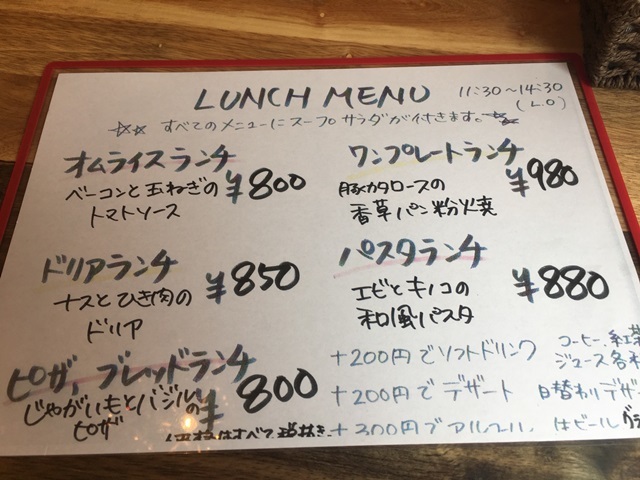 LUNCH MENU 11:30～14:30
(L.O)
☆☆すべてのメニューにスープサラダが付きます。☆☆
オムライスランチ
ベーコンと玉ねぎの
トマトソース
¥800
ワンプレートランチ
豚カタロースの
香草パン粉焼
¥980
ドリアランチ
ナスとひき肉の
ドリア
¥850
パスタランチ
エビとキノコの
和風パスタ
¥880
ピザ、ブレッドランチ
じゃがいもとバジルの
ピザ
¥800
+200円でソフトドリンク コーヒー、紅茶
ジュース各
+200円でデザート 日替わりデザ
+300円でアルコール、 はビール グラ
価格はすべて税抜き